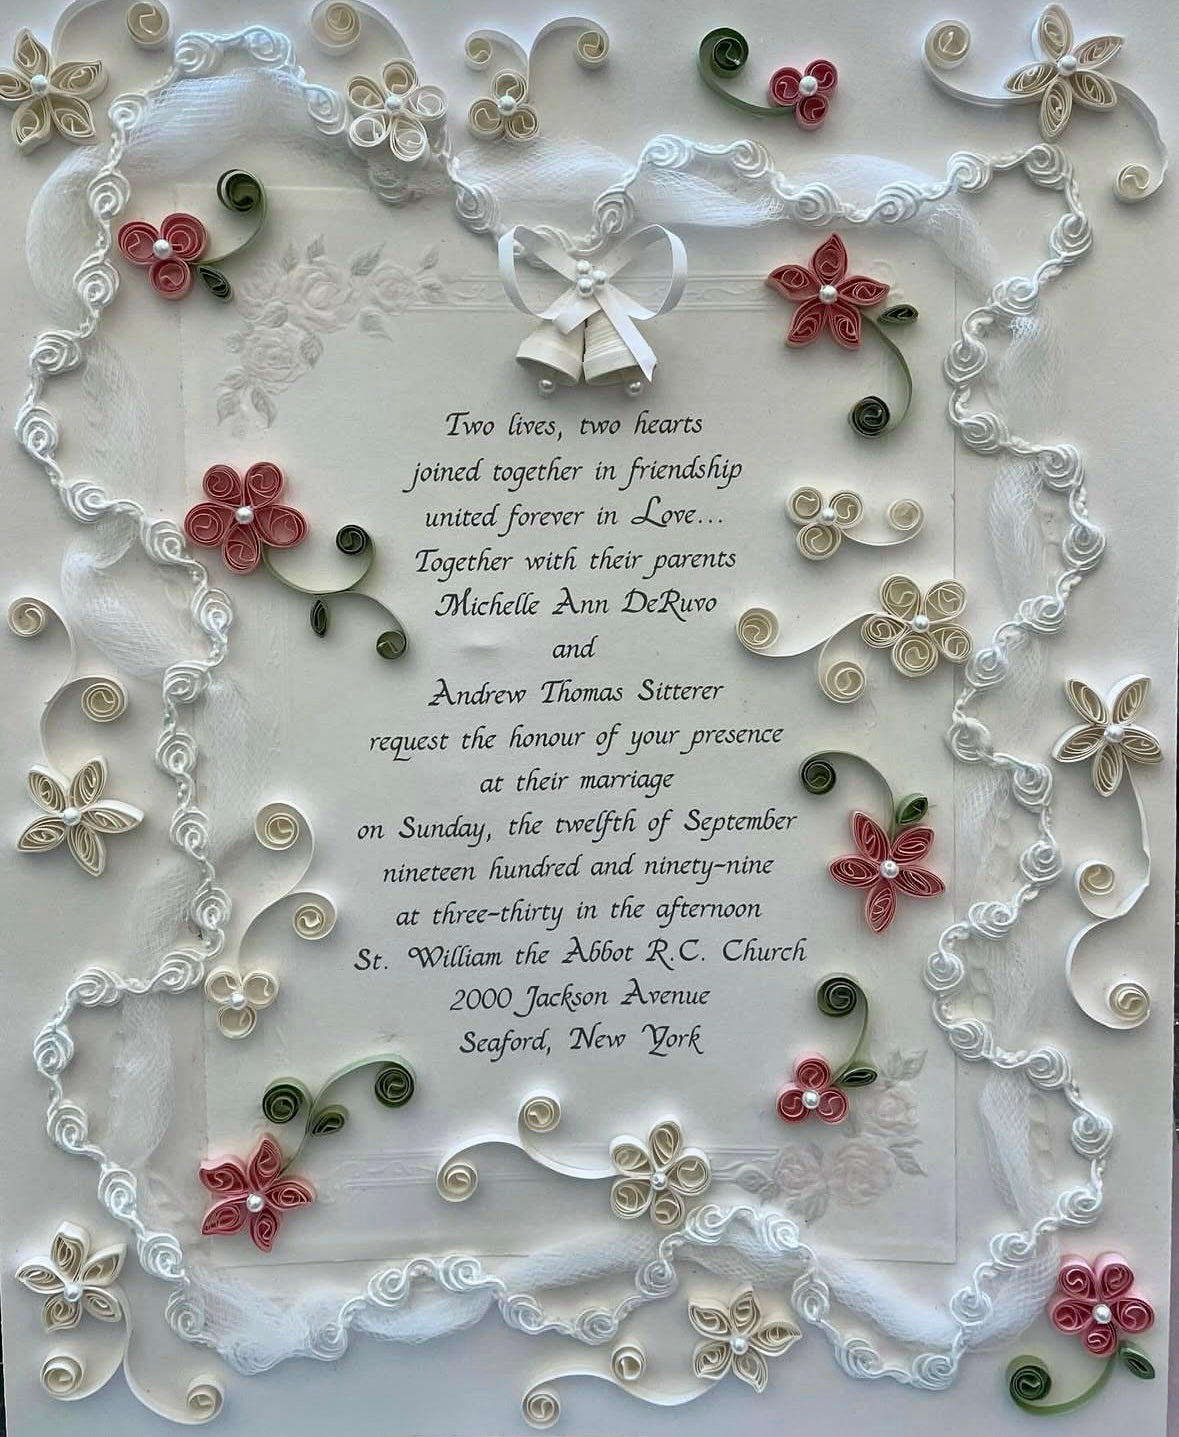 Two lives, two hearts
joined together in friendship
united forever in Love...
Together with their parents
Michelle Ann DeRuvo
and
Andrew Thomas Sitterer
request the honour of your presence
at their marriage
on Sunday, the twelfth of September
nineteen hundred and ninety-nine
at three-thirty in the afternoon
St. William the Abbot R.C. Church
2000 Jackson Avenue
Seaford, New York